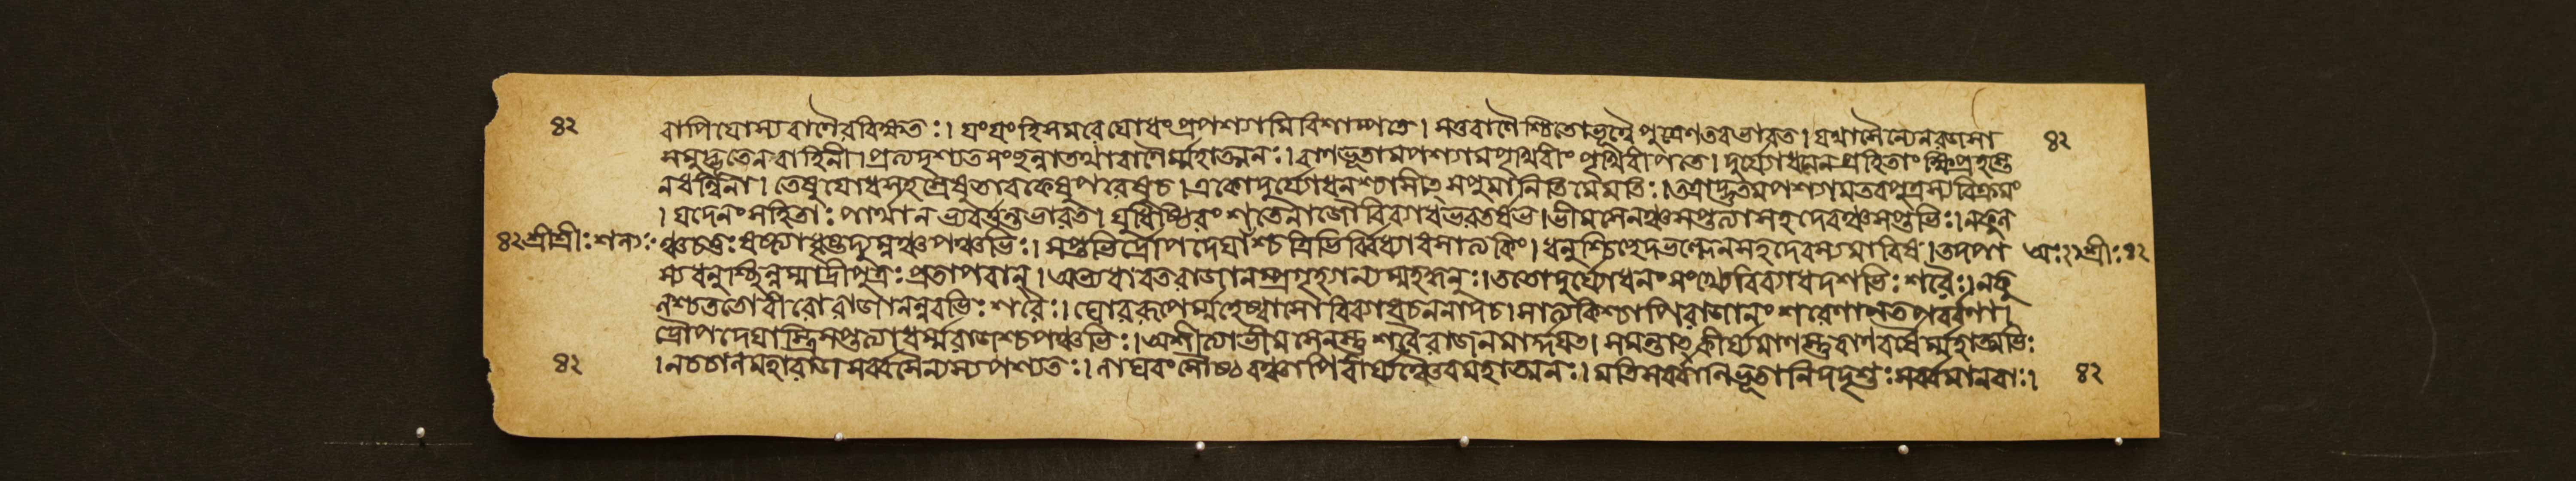 ৪২ বাপিযোস্যবাণৈরবিক্ষতঃ। যংযংহিসমরেযোধংপ্রপশ্যামিবিশাম্পতে। সসবাণৈশ্চিতোভূদ্বৈপুত্রেণতবভারত। যথাসৈন্যেনরজসা ৪২
সমুদ্ধূতেনবাহিনী। প্রত্যদৃশ্যতসংছন্নাতথাবাণৈর্ম্মহাত্মনঃ। বাণভূতামপশ্যামপৃথিবীংপৃথিবীপতে। দুর্য্যোধনেনপ্রহিতাংক্ষিপ্রহস্তে
নধন্বিনা। তেষুযোধসহস্রেষুতাবকেষুপরেষুচ। একোদুর্য্যোধনশ্চাসীত্সপুমানিতিমেমতিঃ। তত্রাদ্ভুতমপশ্যামতবপুত্রস্যবিক্রমং
। যদেনংসহিতাঃপার্থানভ্যবর্ত্তন্তভারত। যুধিষ্ঠিরংশতেনাজৌবিব্যাধভরতর্ষভ। ভীমসেনঞ্চসপ্তত্যাসহদেবঞ্চসপ্তভিঃ। নকুল
৪২ শ্রীশ্রীঃ শল্যঃ ঞ্চচতুঃষষ্ট্যাধৃষ্টদ্যুম্নঞ্চপঞ্চভিঃ। সপ্তভির্দ্রৌপদেয়াংশ্চত্রিভির্বিব্যাধসাত্যকিং। ধনুশ্চিচ্ছেদভল্লেনসহদেবস্যমারিষ। তদপা অঃ২১শ্রীঃ৪২
স্যধনুশ্ছিন্নম্মাদ্রীপুত্রঃপ্রতাপবান্। অভ্যধাবতরাজানম্প্রগৃহ্যান্যম্মহদ্ধনুঃ। ততোদুর্য্যোধনংসংখ্যেবিব্যাধদশভিঃশরৈঃ। নকু
লশ্চততোবীরোরাজানন্নবভিঃশরৈঃ। ঘোররূপৈর্ম্মহেষ্বাসোবিব্যাধচননাদচ। সাত্যকিশ্চাপিরাজানংশরেণানতপর্ব্বণা।
দ্রৌপদেয়াস্ত্রিসপ্তত্যাধর্ম্মরাজশ্চপঞ্চভিঃ। অশীত্যাভীমসেনস্তুশরৈরাজনমার্দ্দয়ত। সমন্তাত্কীর্য্যমাণস্তুবাণবর্ষৈর্ম্মহাত্মভিঃ
৪২ । নচচালমহারাজসর্ব্বসৈন্যস্যপশ্যতঃ। লাঘবংসৌষ্ঠবঞ্চাপিবীর্য্যঞ্চৈবমহাত্মনঃ। মতিসর্ব্বানিভূতানিদদৃশুঃসর্ব্বমানবাঃ। ৪২